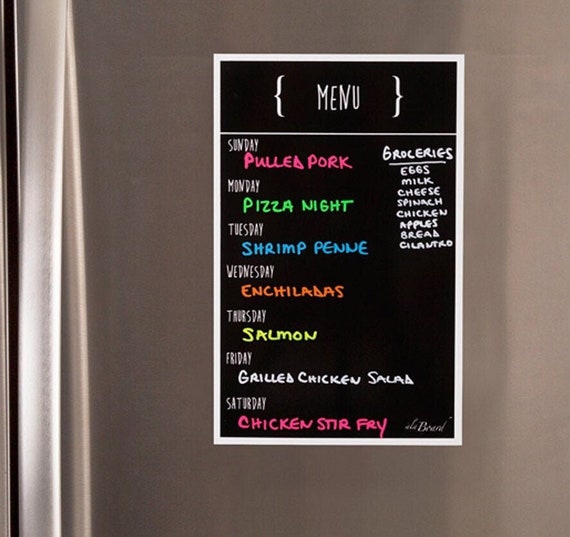 { MENU }
SUNDAY
PULLED PORK
MONDAY
PIZZA NIGHT
TUESDAY
SHRIMP PENNE
WEDNESDAY
ENCHILADAS
THURSDAY
SALMON
FRIDAY
GRILLED CHICKEN SALAD
SATURDAY
CHICKEN STIR FRY
GROCERIES
EGGS
MILK
CHEESE
SPINACH
CHICKEN
APPLES
BREAD
CILANTRO
alaBoard